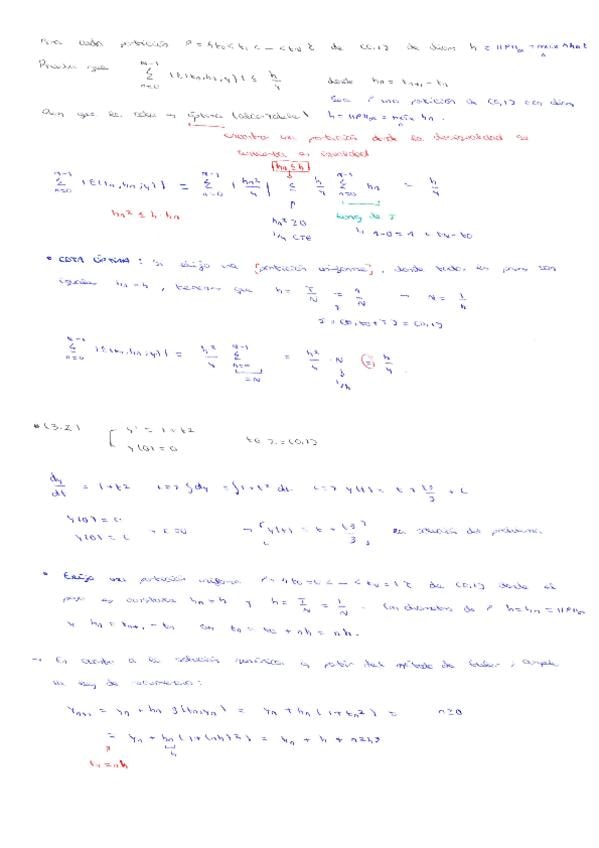 cada partición P = {t0 < t1 < — < tN} de [0,1] de diám h = ||P||∞ = max
Prueba que N-1 Σ n=0 |E(tn,hn;y)| ≤ h/4 donde hn = tn+1 - tn
Sea P una partición de [0,1] con diám
que la cota es óptima (alcanzable) h = ||P||∞ = max hn.
encontrar una partición donde la desigualdad se
convierta en igualdad
hn ≤ h
N-1 Σ n=0 |E(tn,hn;y)| = N-1 Σ n=0 |hn²/4| ≤ h/4 N-1 Σ n=0 hn = h/4
hn² ≤ h·hn
hn² ≥ 0
1/4 CTE
long de I
1-0 = 1 = tN - t0
• COTA ÓPTIMA: Si elijo una [partición uniforme], donde todos los pasos son
iguales hn = h, tenemos que h = T/N = 1/N → N = 1/h
I = [t0, t0+T] = [0,1]
N-1 Σ n=0 |E(tn,hn;y)| = h²/4 N-1 Σ n=0 = h²/4 · N = h/4.
= N
1/h
• (3.2) { y' = 1 + t²
y(0) = 0
t ∈ I = [0,1]
dy/dt = 1 + t² <=> ∫dy = ∫1 + t² dt <=> y(t) = t + t³/3 + C
y(0) = 0
y(0) = C
→ C = 0 → [y(t) = t + t³/3], es solución del problema.
• Elijo una partición uniforme P = {t0 = 0 < — < tN = 1} de [0,1] donde el
paso es constante hn = h y h = T/N = 1/N. Con diámetro de P h = hn = ||P||∞
y hn = tn+1 - tn con tn = t0 + nh = nh.
→ En cuanto a la solución numérica a partir del método de Euler, cumple
la ley de recurrencia:
yn+1 = yn + hn f(tn,yn) = yn + hn (1 + tn²) = n ≥ 0
= yn + hn (1 + (nh)²) = yn + h + n²h³
h
tn = nh